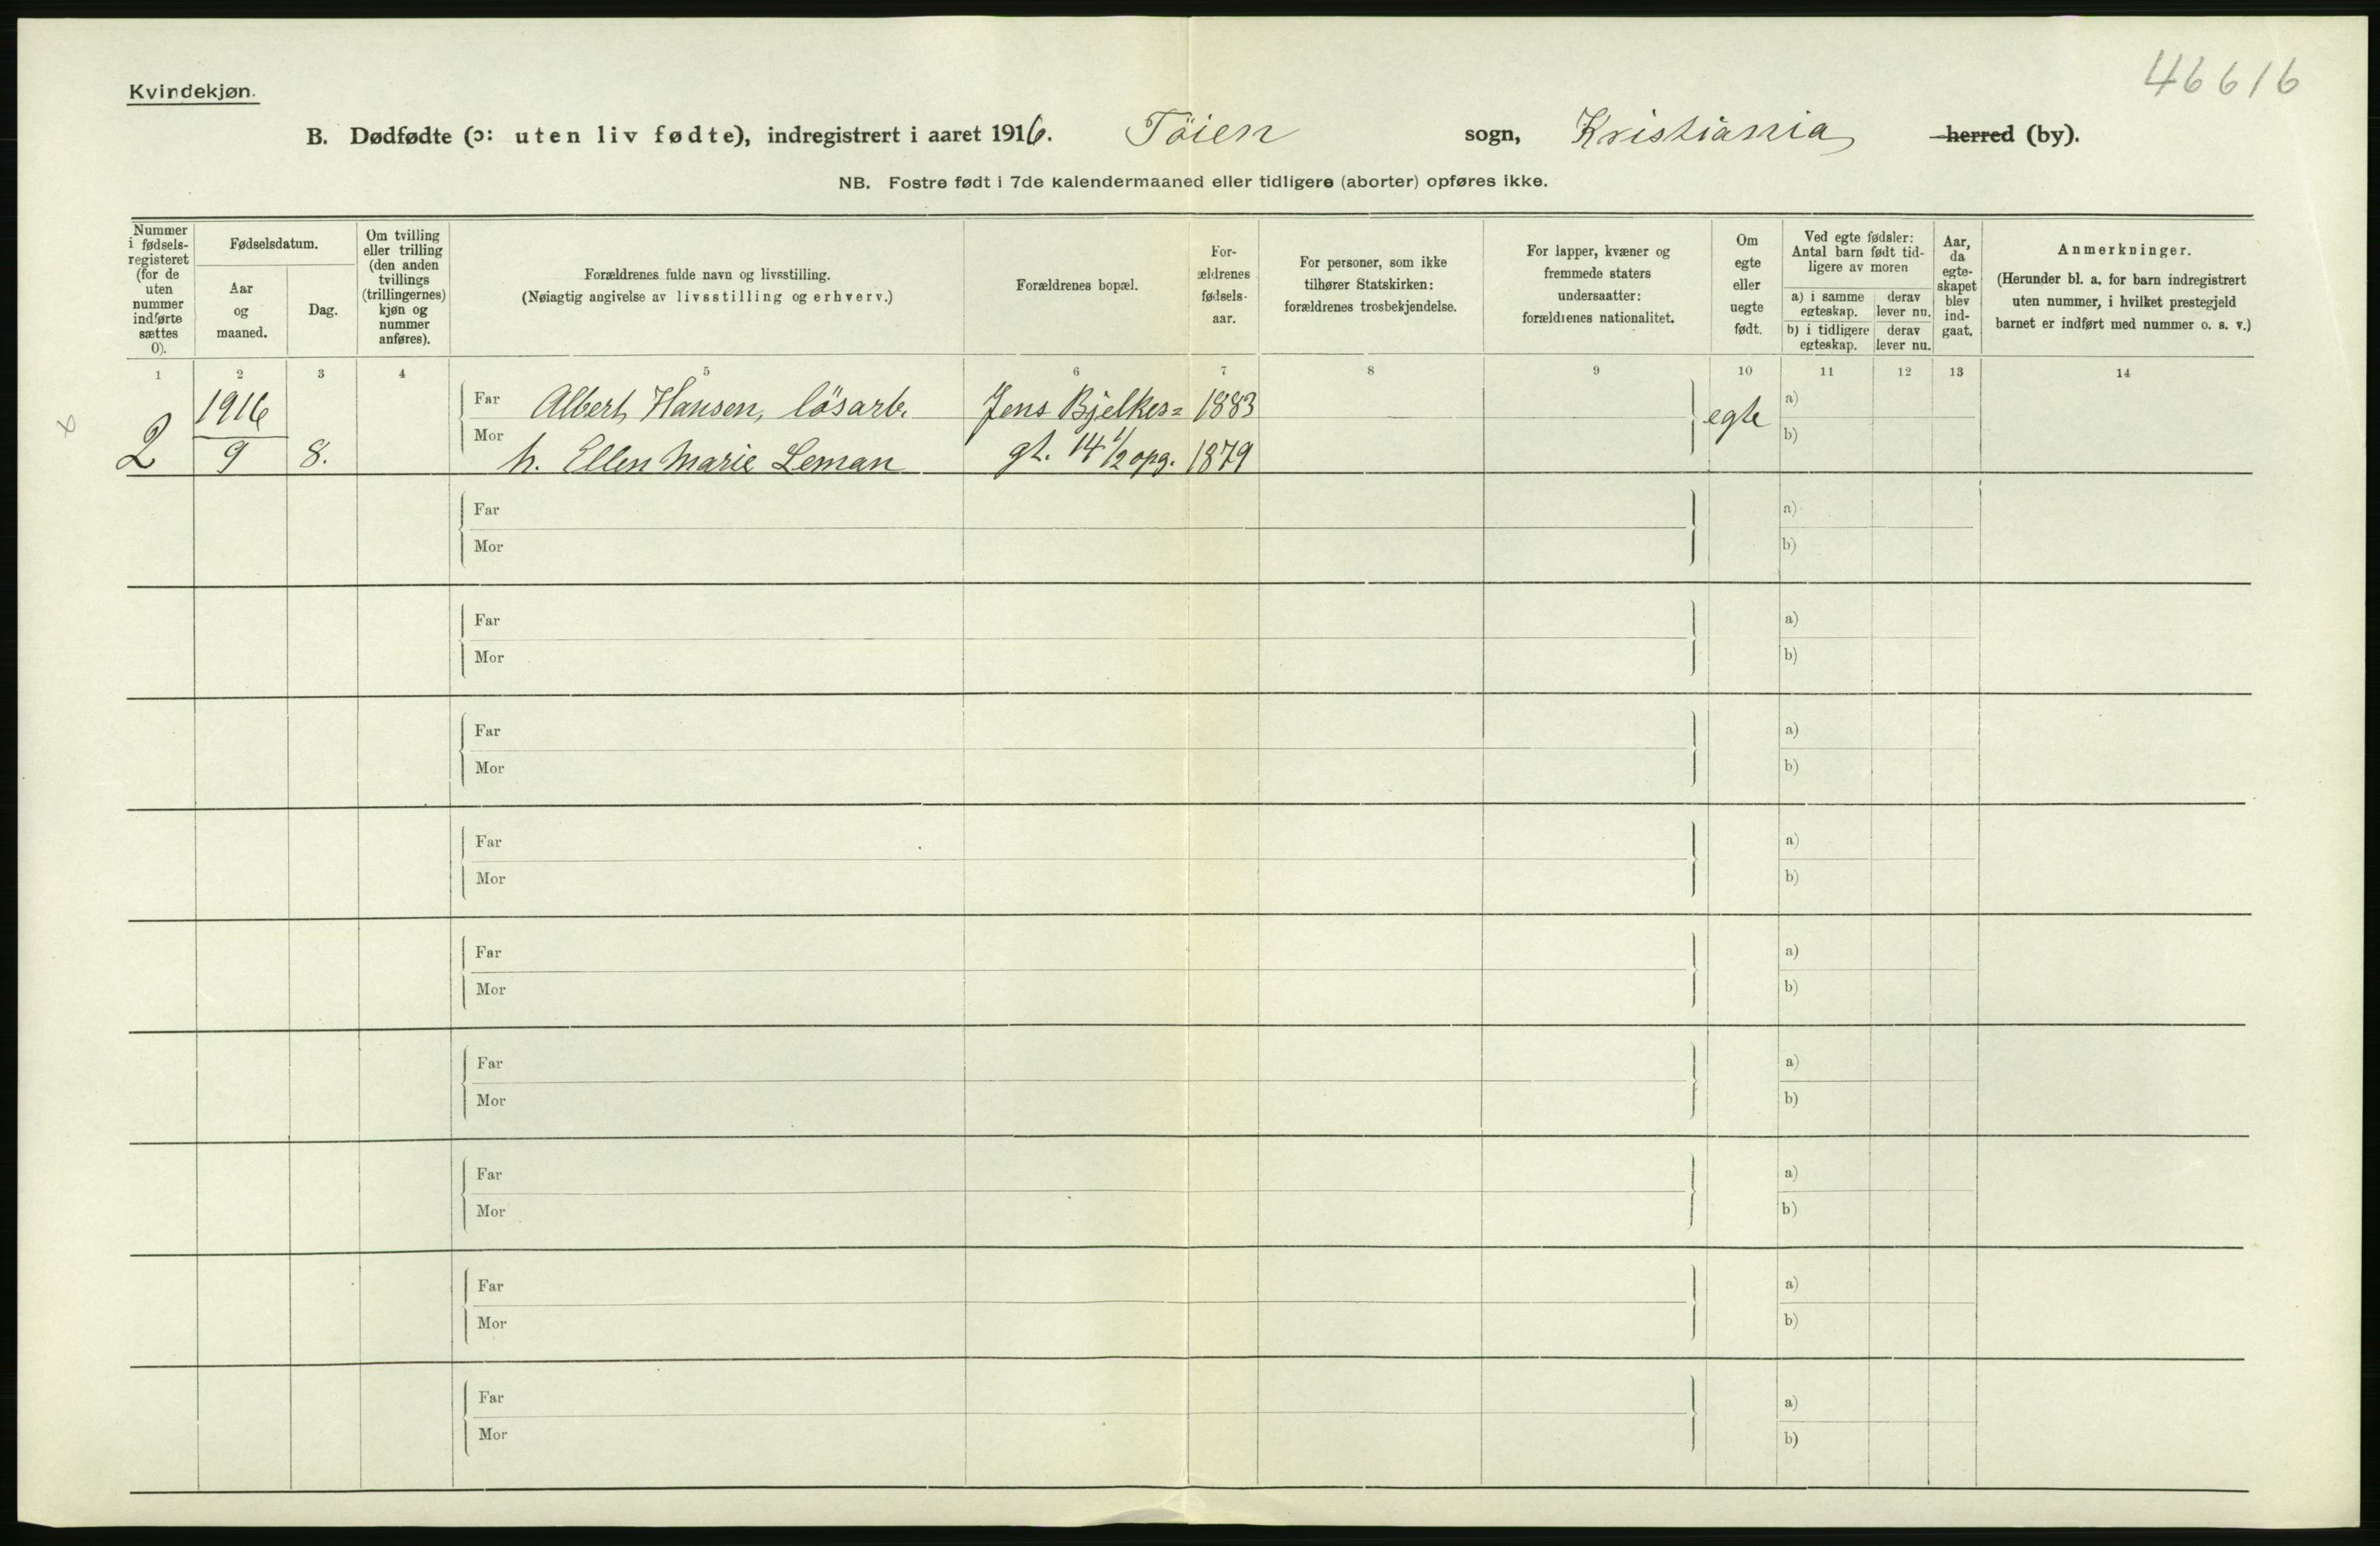 46616
Kvindekjøn.
B. Dødfødte (ɔ: uten liv fødte), indregistrert i aaret 1916. Töien sogn, Kristiania herred (by).
NB. Fostre født i 7de kalendermaaned eller tidligere (aborter) opføres ikke.
Nummer
i fødsels-
registeret
(for de
uten
nummer
indførte
sættes
0).
Fødselsdatum.
Aar
og
maaned.
Dag.
Om tvilling
eller trilling
(den anden
tvillings
(trillingernes)
kjøn og
nummer
anføres).
Forældrenes fulde navn og livsstilling.
(Nøiagtig angivelse av livsstilling og erhverv.)
Forældrenes bopæl.
For-
ældrenes
fødsels-
aar.
For personer, som ikke
tilhører Statskirken:
forældrenes trosbekjendelse.
For lapper, kvæner og
fremmede staters
undersaatter:
forældrenes nationalitet.
Om
egte
eller
uegte
født.
Ved egte fødsler:
Antal barn født tid-
ligere av moren
a) i samme
egteskap.
derav
lever nu.
b) i tidligere
egteskap.
derav
lever nu.
Aar,
da
egte-
skapet
blev
ind-
gaat.
Anmerkninger.
(Herunder bl. a. for barn indregistrert
uten nummer, i hvilket prestegjeld
barnet er indført med nummer o. s. v.)
1 2 3 4 5 6 7 8 9 10 11 12 13 14
1916 Far Albert Hansen, lösarb. Jens Bjelkes= 1883 egte a)
x 2 9 8. Mor h. Ellen Marie Leman gt. 14 1/2 opg. 1879 b)
Far a)
Mor b)
Far a)
Mor b)
Far a)
Mor b)
Far a)
Mor b)
Far a)
Mor b)
Far a)
Mor b)
Far a)
Mor b)
Far a)
Mor b)
Far a)
Mor b)